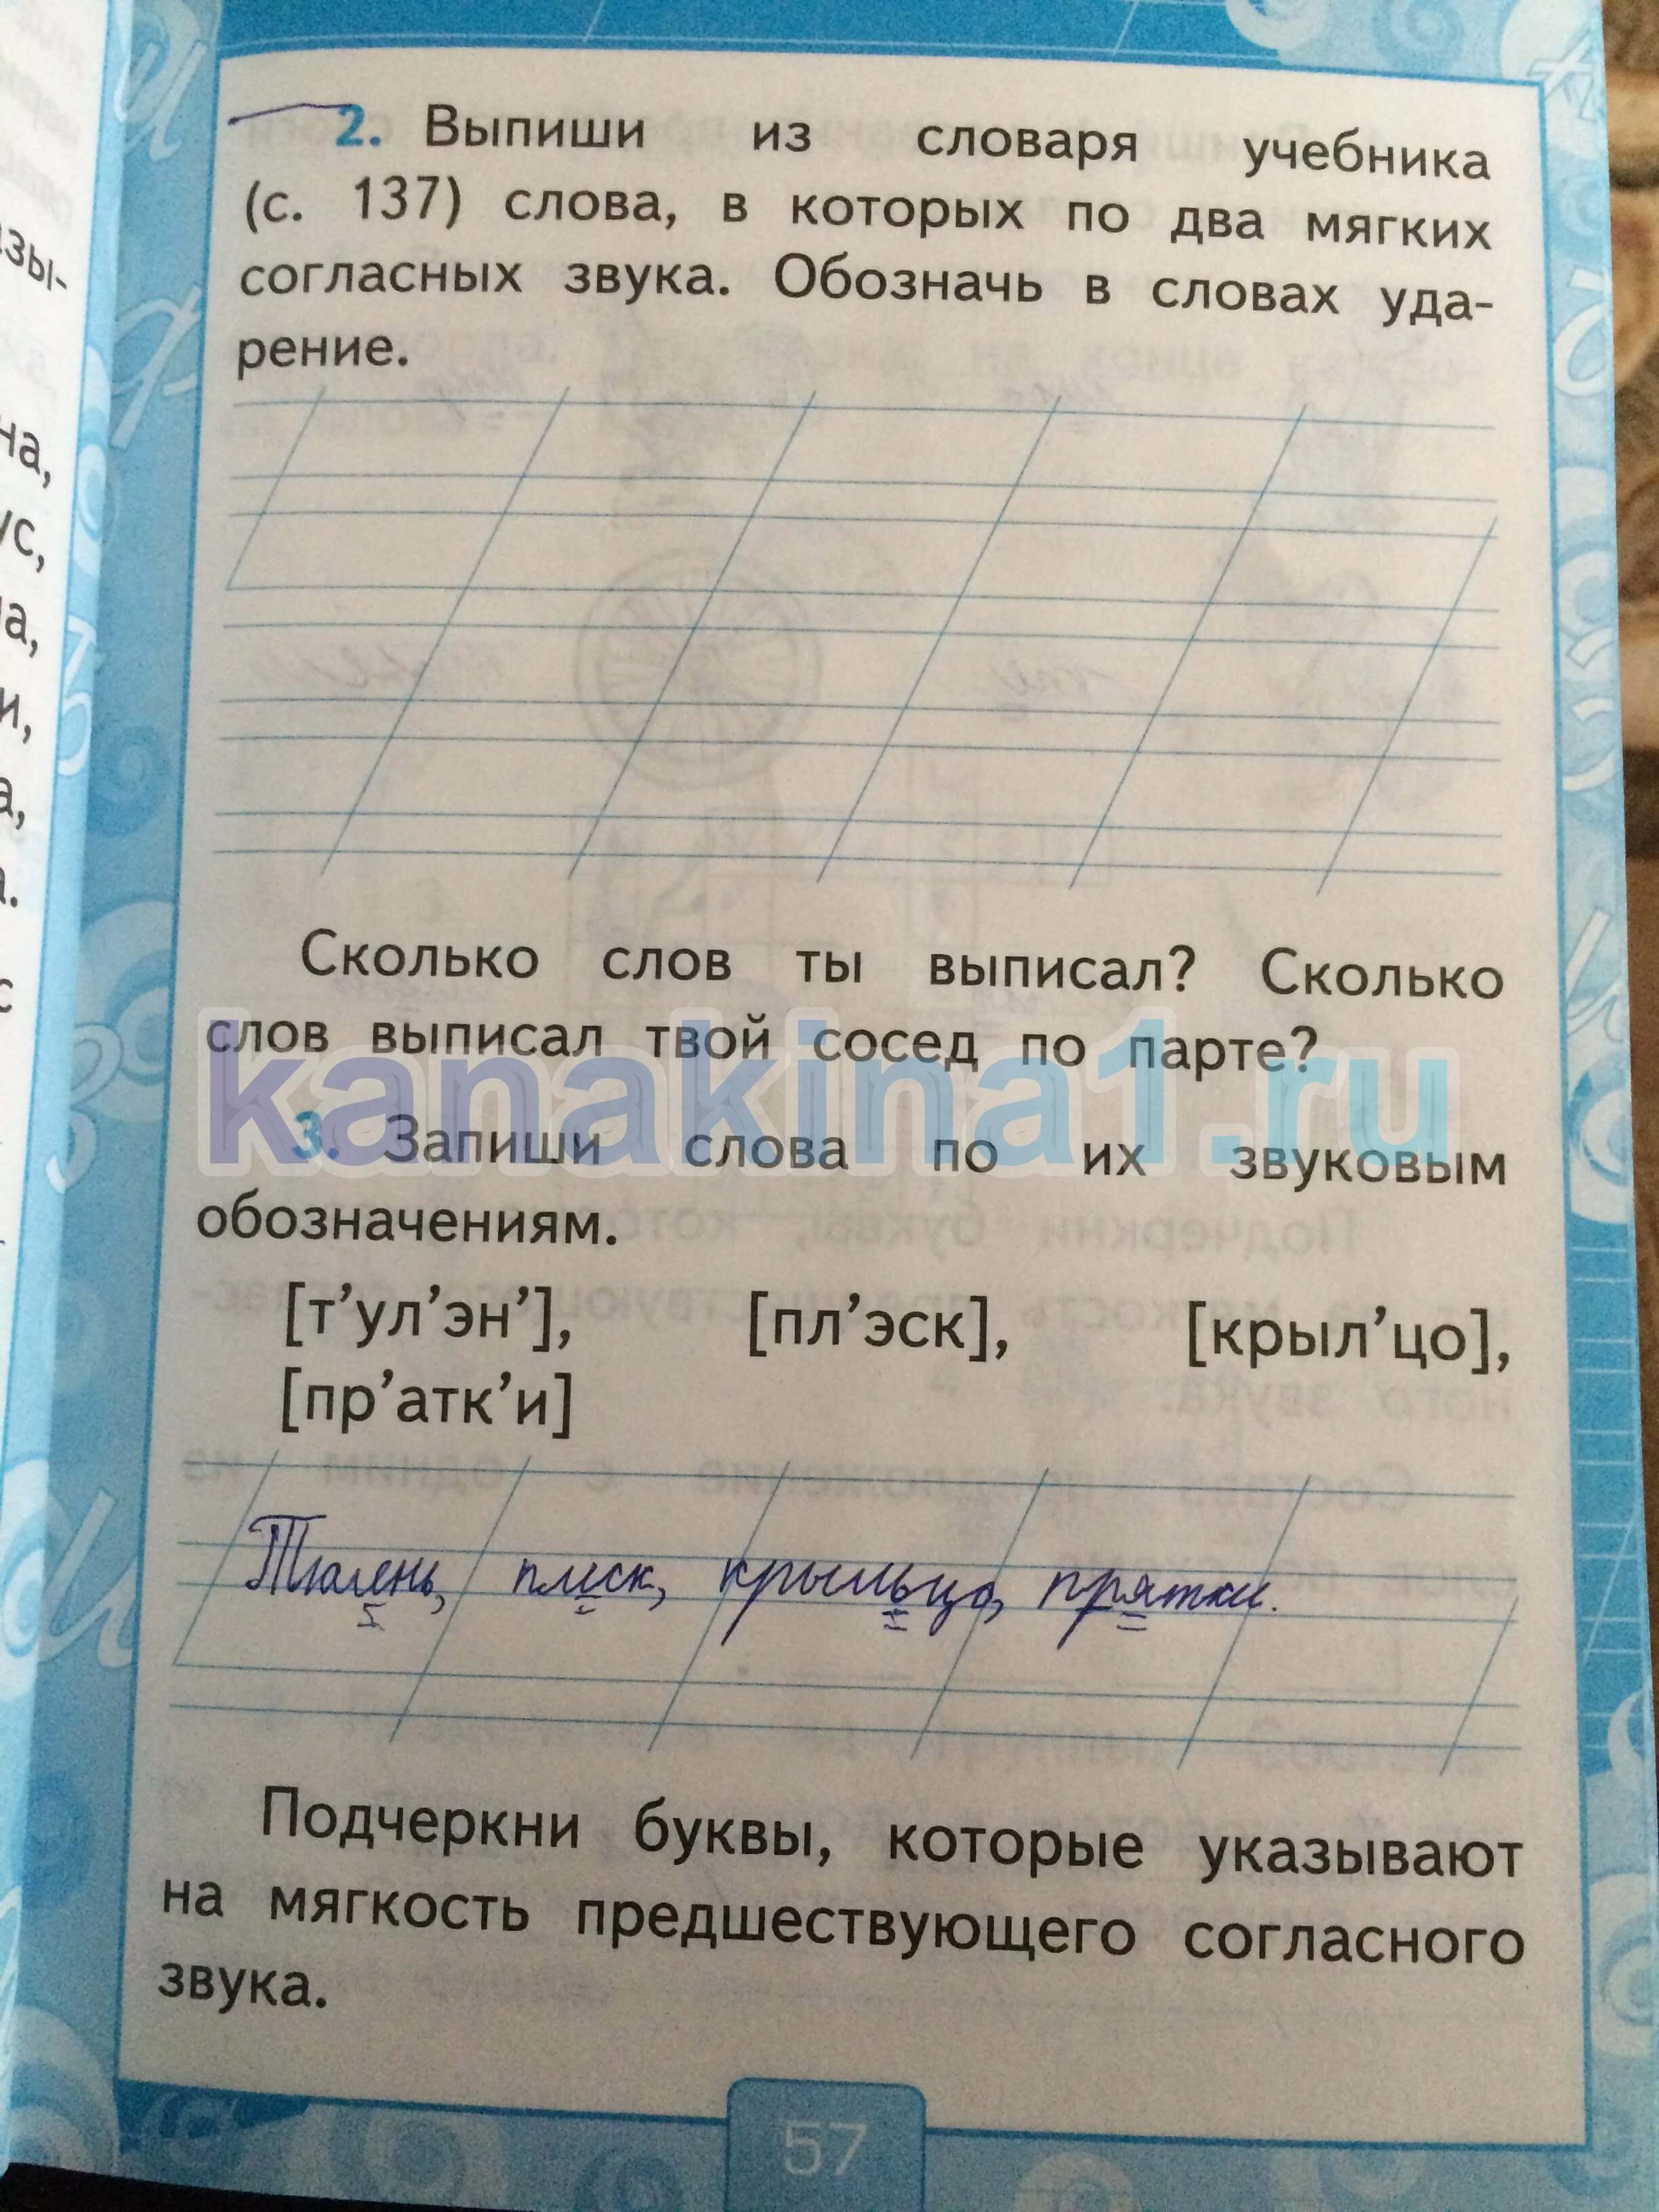 2. Выпиши из словаря учебника
(с. 137) слова, в которых по два мягких
согласных звука. Обозначь в словах уда-
рение.
Сколько слов ты выписал? Сколько
слов выписал твой сосед по парте?
kanakina1.ru
3. Запиши слова по их звуковым
обозначениям.
[т’ул’эн’], [пл’эск], [крыл’цо],
[пр’атк’и]
Тюлень, плеск, крыльцо, прятки.
Подчеркни буквы, которые указывают
на мягкость предшествующего согласного
звука.
57